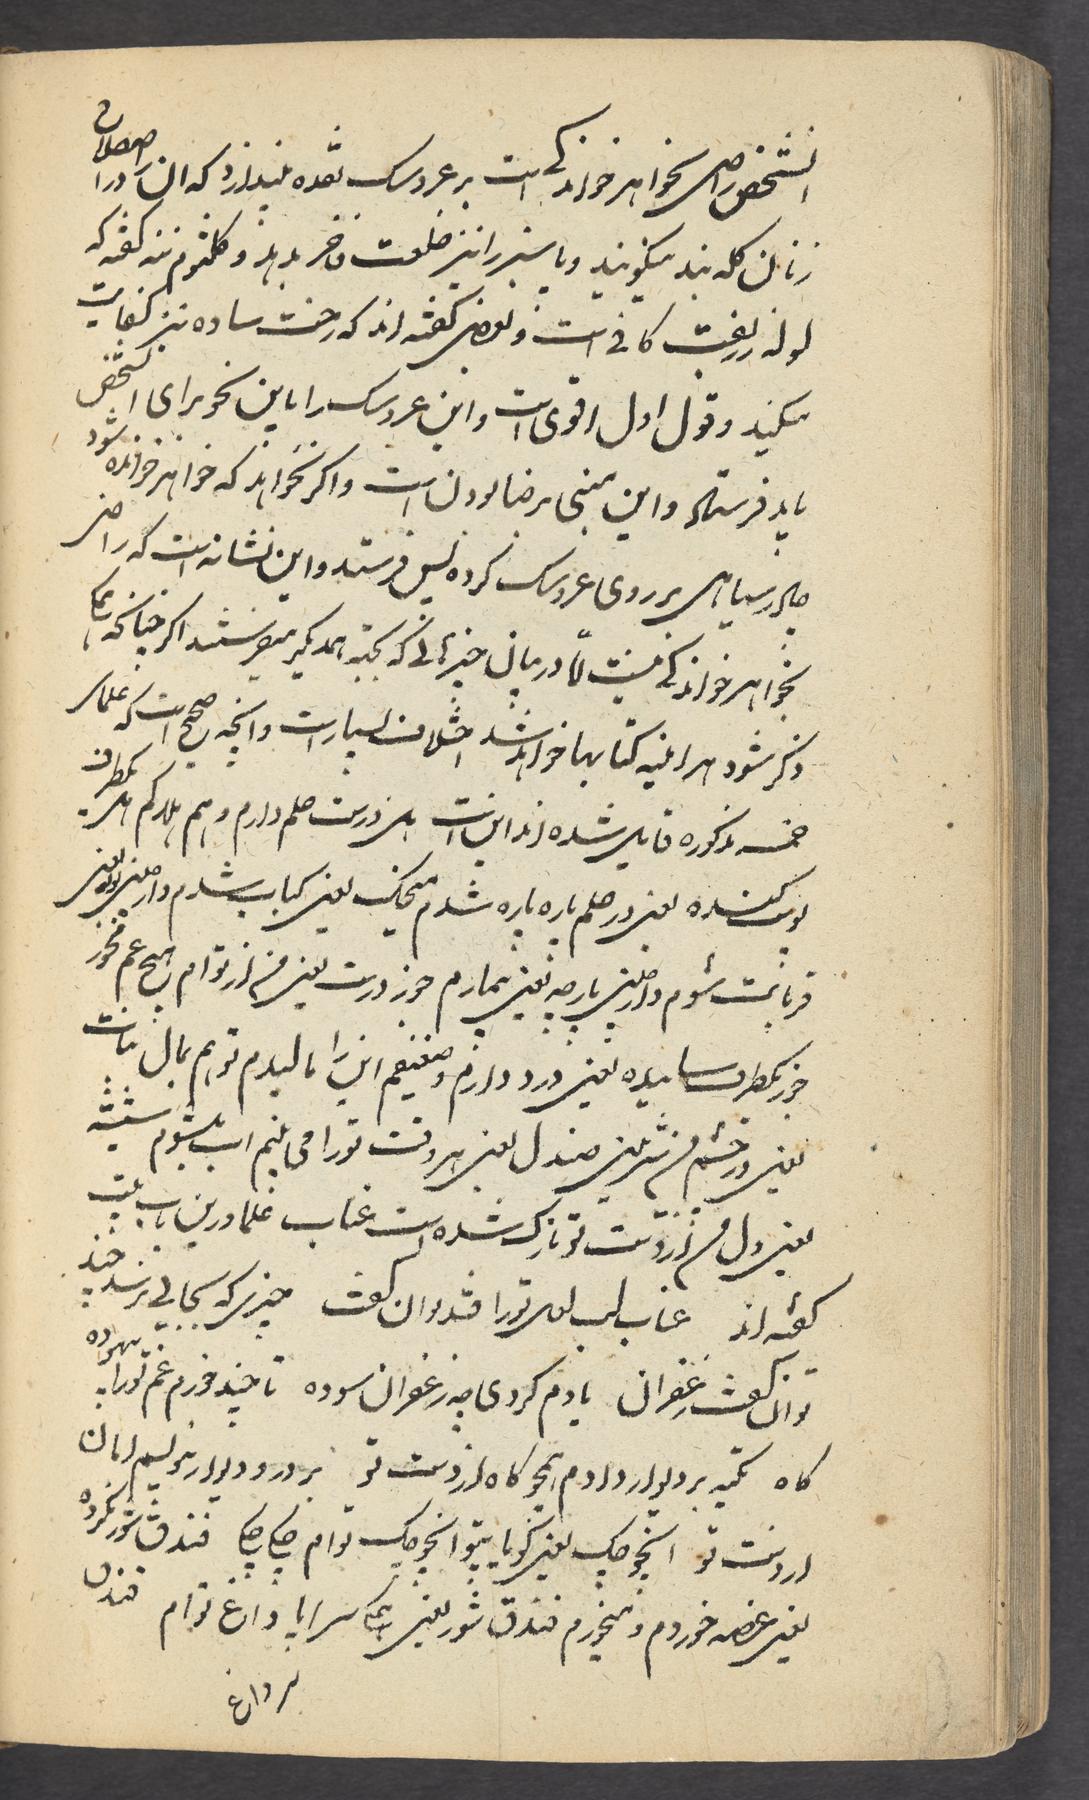 اصطلاح
آنشخص راضی بخواهر خواندگی است بر عروسک نقده میندازد که آن را در
زنان کله بند میکویند و یا سینی را نیز خلعت فاخر بدهد و کلثوم ننه کفته که
لوله زربفت کافی است و بعضی کفته اند که رخت ساده نیز کفایت
میکند و قول اول اقوی است و این عروسک را باین نحو برای آنشخص
باید فرستاد و این مبنی برضا بودن است و اکر نخواهد که خواهر خوانده شود
چادر سیاهی بر روی عروسک کرده پس فرستد و این نشانه است که راضی
بخواهر خواندگی نیست اما در میان چیزهائی که بجهة همدیگر میفرستند اکر چنانکه
ذکر شود هر اینه کتابها خواهد شد اختلاف بسیار است و آنچه صحیح است که علمای
خمسه مذکوره قایل شده اند این است هل درست حلم دارم و هم هلاکم هل یکطرف
پوست کنده یعنی در حلم پاره پاره شدم میخک یعنی کباب شدم دارچینی لوله یعنی
قربانت شوم دارچینی پارچه یعنی بیمارم جوز درست یعنی من از توام هیچ غم مخور
جوز یکطرف سائیده یعنی درد دارم و ضعیفم این را مالیدم تو هم بمال نبات
یعنی در چشم من شیرینی صندل یعنی هر وقت تو را می بینم آب میشوم شیشه
یعنی دل من از دست تو نازک شده است عناب علما درین باب بیت
کفته اند عناب لب لعل تو را قند توان کفت چیزی که بجائی نرسد چند
توان کفت زعفران یادم کردی به زعفران سوده تا چند خورم غم تو را بیهوده
کاه تکیه بر دیوار دادم همچو کاه از دست تو بر در و دیوار نویسم امان
از دست تو انچوچک یعنی کویا بتو انچوچک توام چکا چکا فندق شور کرده
یعنی غصه خوردم و میخورم فندق شور یعنی سراپا داغ توام فندق
بو داغ